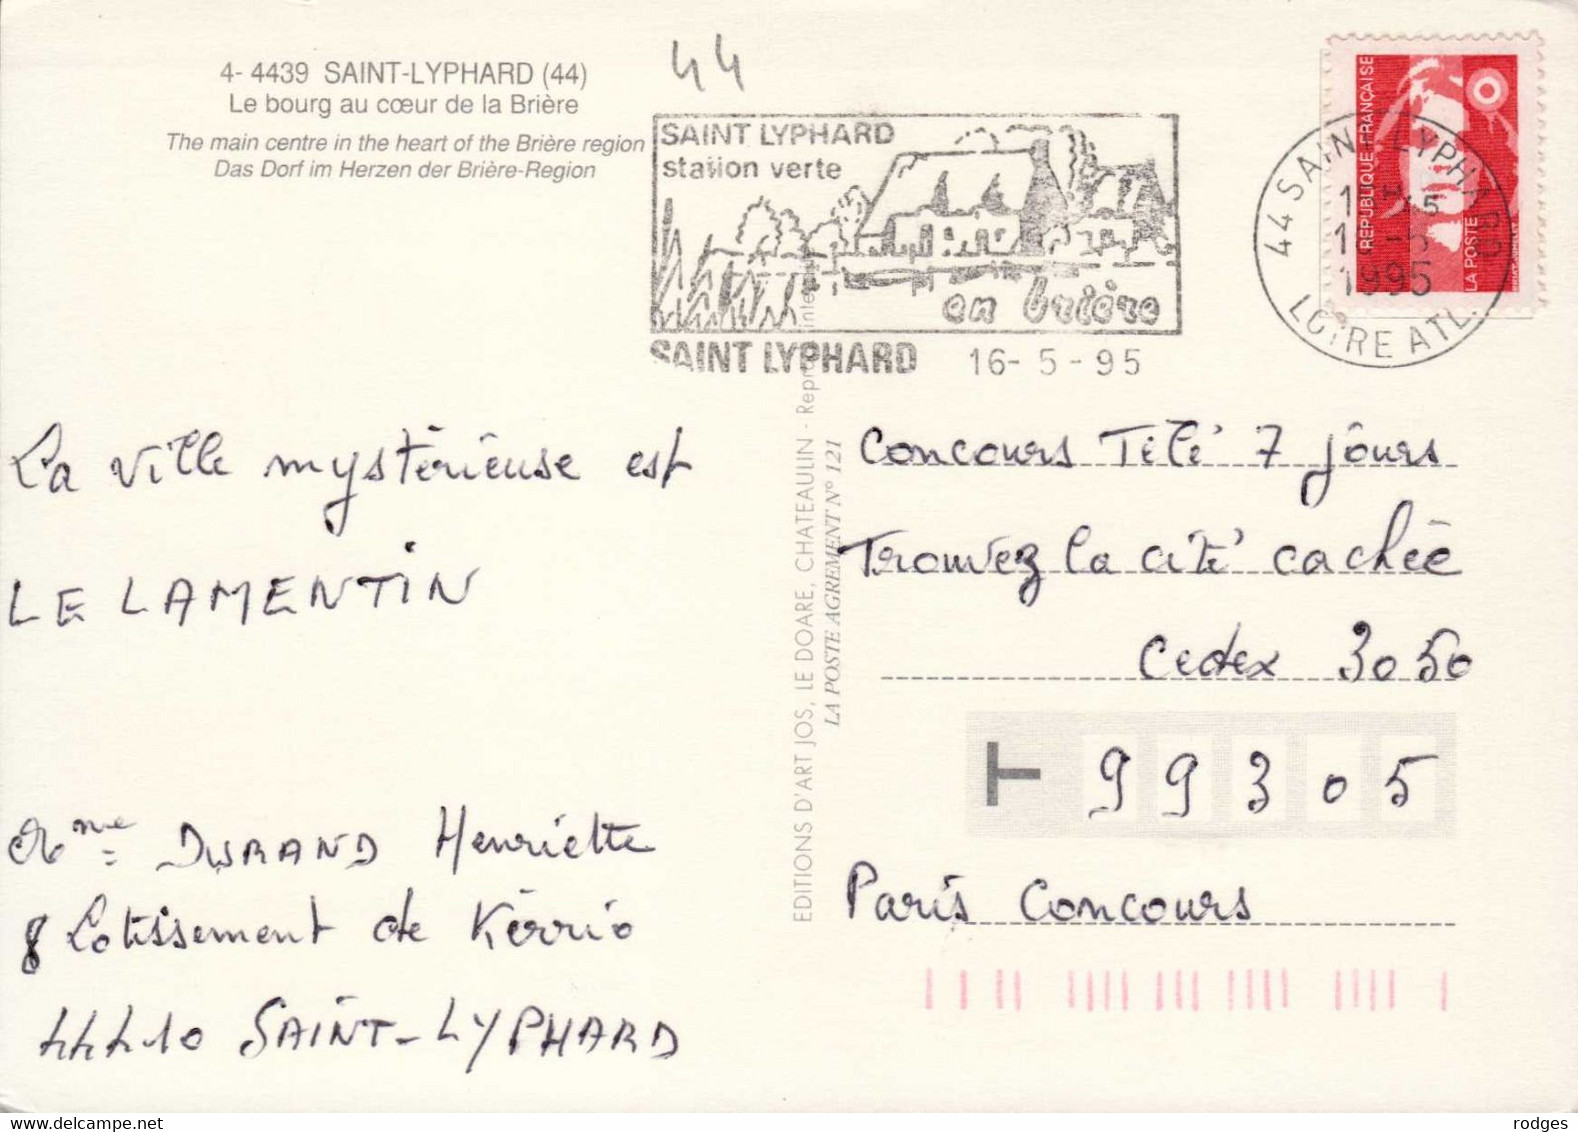 4- 4439 SAINT-LYPHARD (44)
Le bourg au cœur de la Brière
The main centre in the heart of the Brière region
Das Dorf im Herzen der Brière-Region
44
SAINT LYPHARD
station verte
en brière
SAINT LYPHARD 16- 5 - 95
RÉPUBLIQUE FRANÇAISE
LA POSTE
44 SAINT LYPHARD
1995
LOIRE ATL.
La ville mystérieuse est
LE LAMENTIN
Mme DURAND Henriette
8 Lotissement de Kerrio
44410 SAINT-LYPHARD
EDITIONS D'ART JOS, LE DOARE, CHATEAULIN - Repro
LA POSTE AGREMENT N° 121
Concours Télé 7 jours
Trouvez la cité cachée
Cedex 3050
T 99305
Paris Concours
rodges